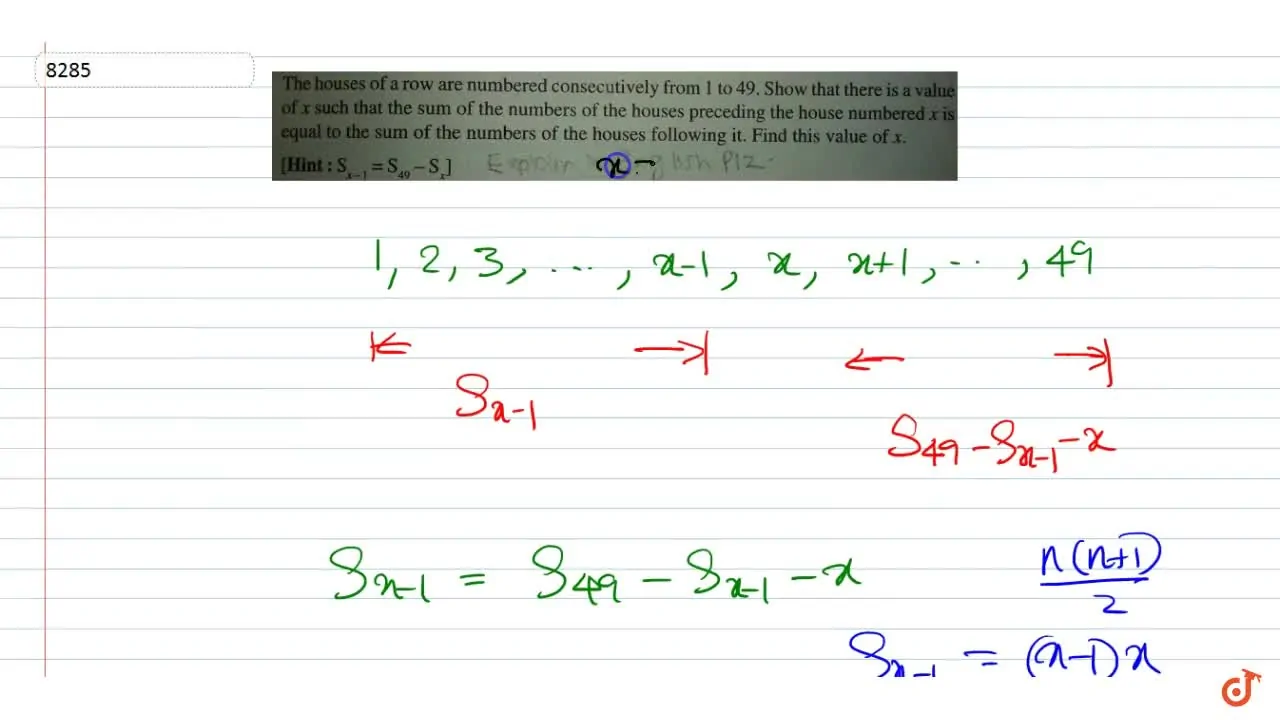 8285
The houses of a row are numbered consecutively from 1 to 49. Show that there is a value
of x such that the sum of the numbers of the houses preceding the house numbered x is
equal to the sum of the numbers of the houses following it. Find this value of x.
[Hint : Sₓ₋₁ = S₄₉ – Sₓ] Explain Plz x =
1, 2, 3, ...., x-1, x, x+1, ..., 49
Sₓ₋₁
S₄₉ - Sₓ₋₁ - x
Sₓ₋₁ = S₄₉ - Sₓ₋₁ - x
n(n+1)
2
Sₓ₋₁ = (x-1)x